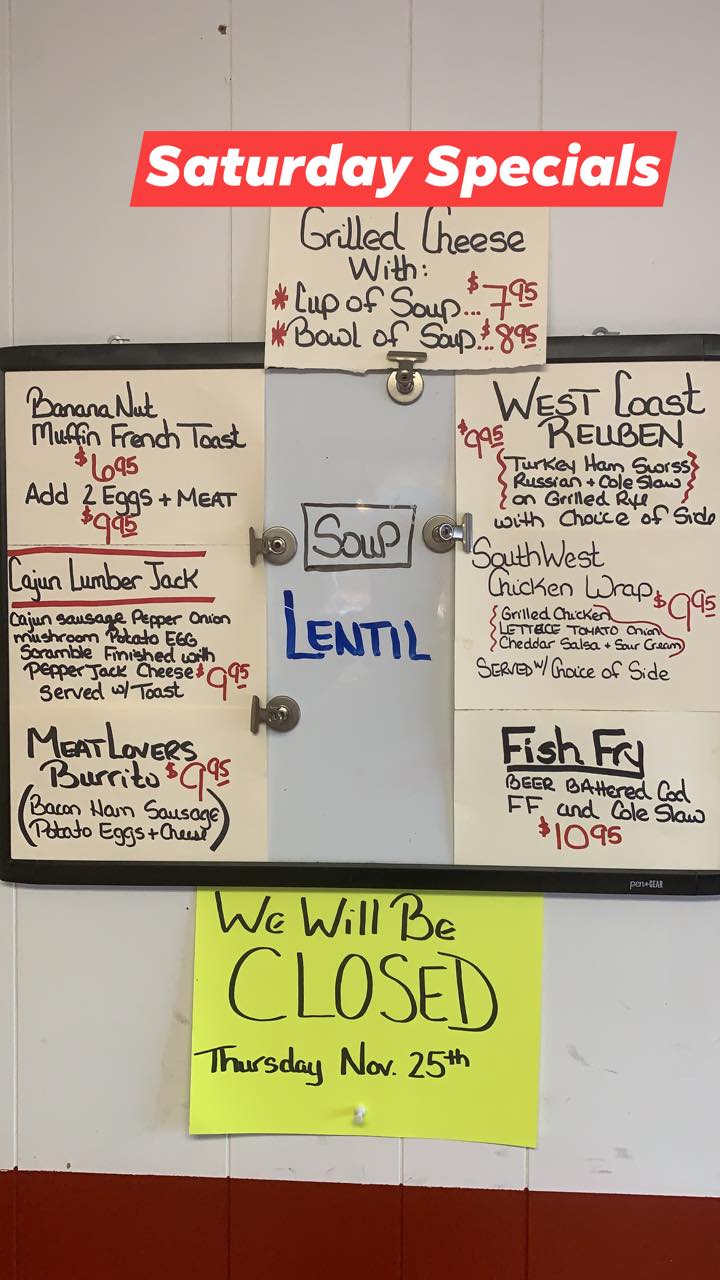 Saturday Specials
Grilled Cheese
With:
* Cup of Soup... $7.95
* Bowl of Soup... $8.95
Banana Nut
Muffin French Toast
$6.95
Add 2 Eggs + MEAT
$9.95
Cajun Lumber Jack
Cajun sausage Pepper Onion
mushroom Potato EGG
Scramble Finished with
Pepper Jack Cheese $9.95
Served w/ Toast
MEAT LOVERS
Burrito $9.95
(Bacon Ham Sausage
Potato Eggs + Cheese)
Soup
LENTIL
WEST Coast
$9.95 REUBEN
Turkey Ham Swiss
Russian + Cole Slaw
on Grilled Rye
with Choice of Side
SouthWest
Chicken Wrap $9.95
Grilled Chicken
LETTUCE TOMATO Onion
Cheddar Salsa + Sour Cream
SERVED W/ Choice of Side
Fish Fry
BEER BATTered Cod
FF and Cole Slaw
$10.95
pen+GEAR
We Will Be
CLOSED
Thursday Nov. 25th